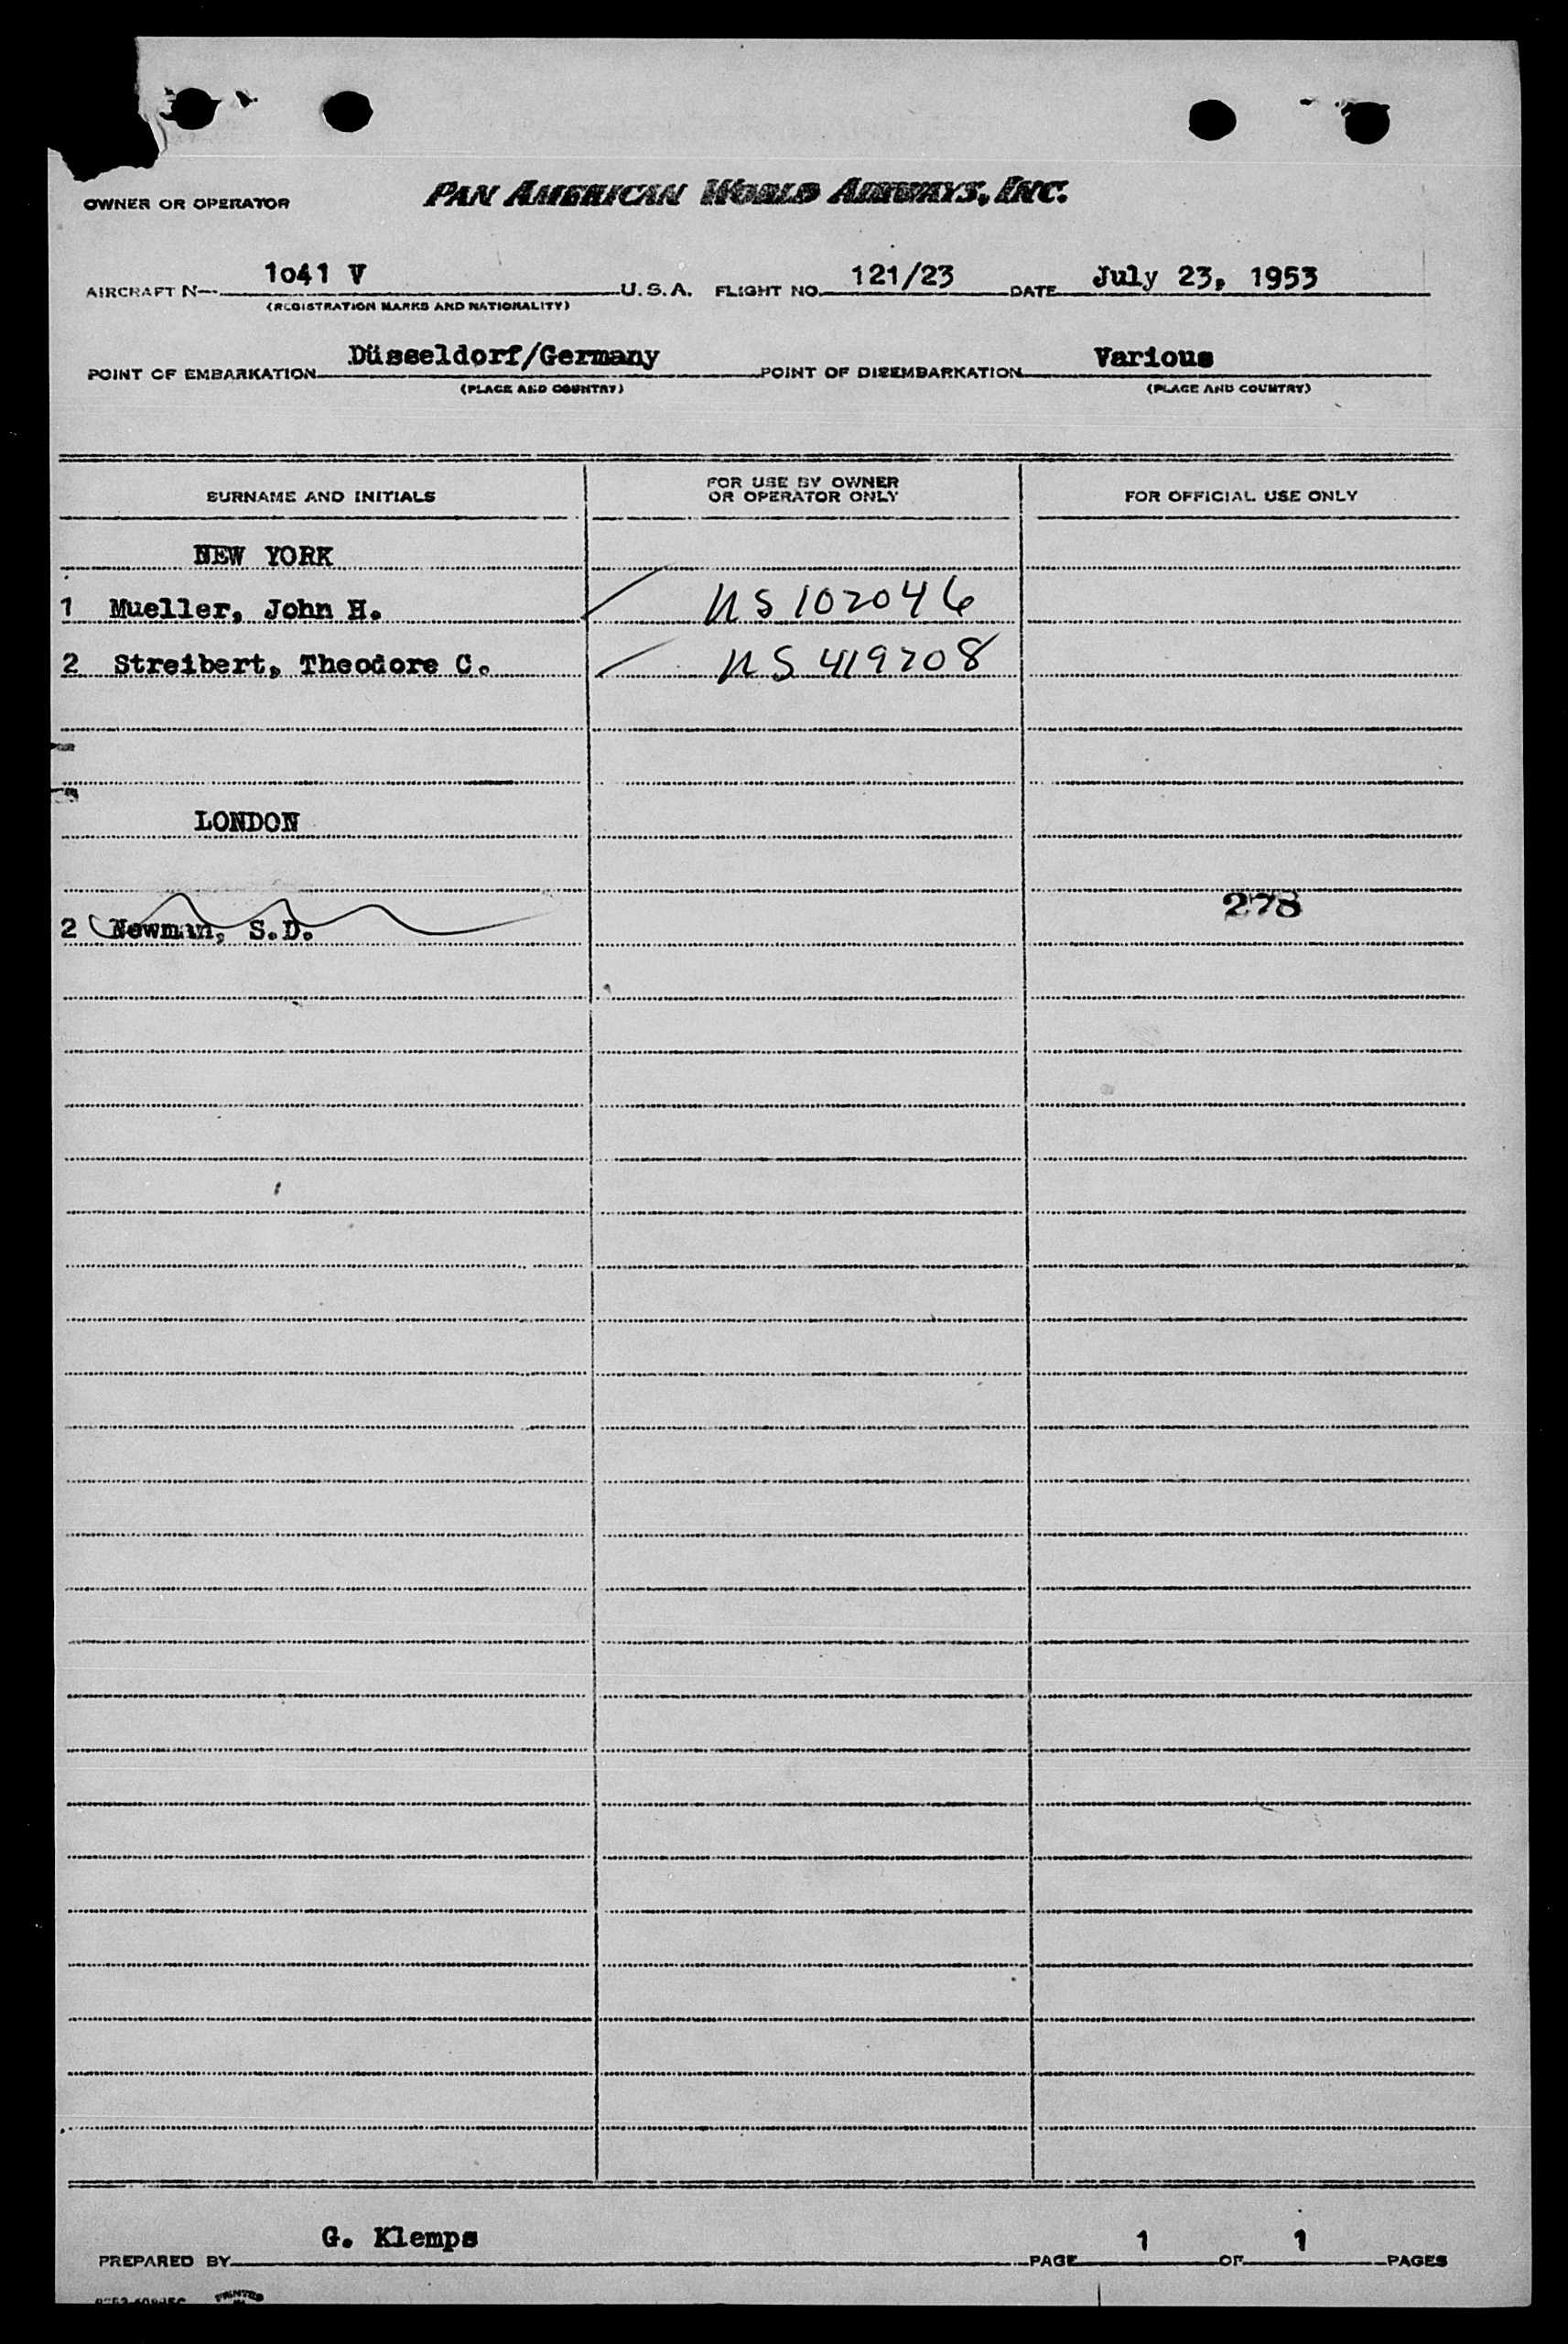 OWNER OR OPERATOR PAN AMERICAN WORLD AIRWAYS, INC.
AIRCRAFT N 1o41 V U.S.A. FLIGHT NO. 121/23 DATE July 23, 1953
(REGISTRATION MARKS AND NATIONALITY)
POINT OF EMBARKATION Düsseldorf/Germany POINT OF DISEMBARKATION Various
(PLACE AND COUNTRY) (PLACE AND COUNTRY)
SURNAME AND INITIALS FOR USE BY OWNER OR OPERATOR ONLY FOR OFFICIAL USE ONLY
NEW YORK
1 Mueller, John H. US 102046
2 Streibert, Theodore C. US 419208
LONDON
278
2 Newman, S.D.
G. Klemps
PREPARED BY PAGE 1 OF 1 PAGES
PRINTED